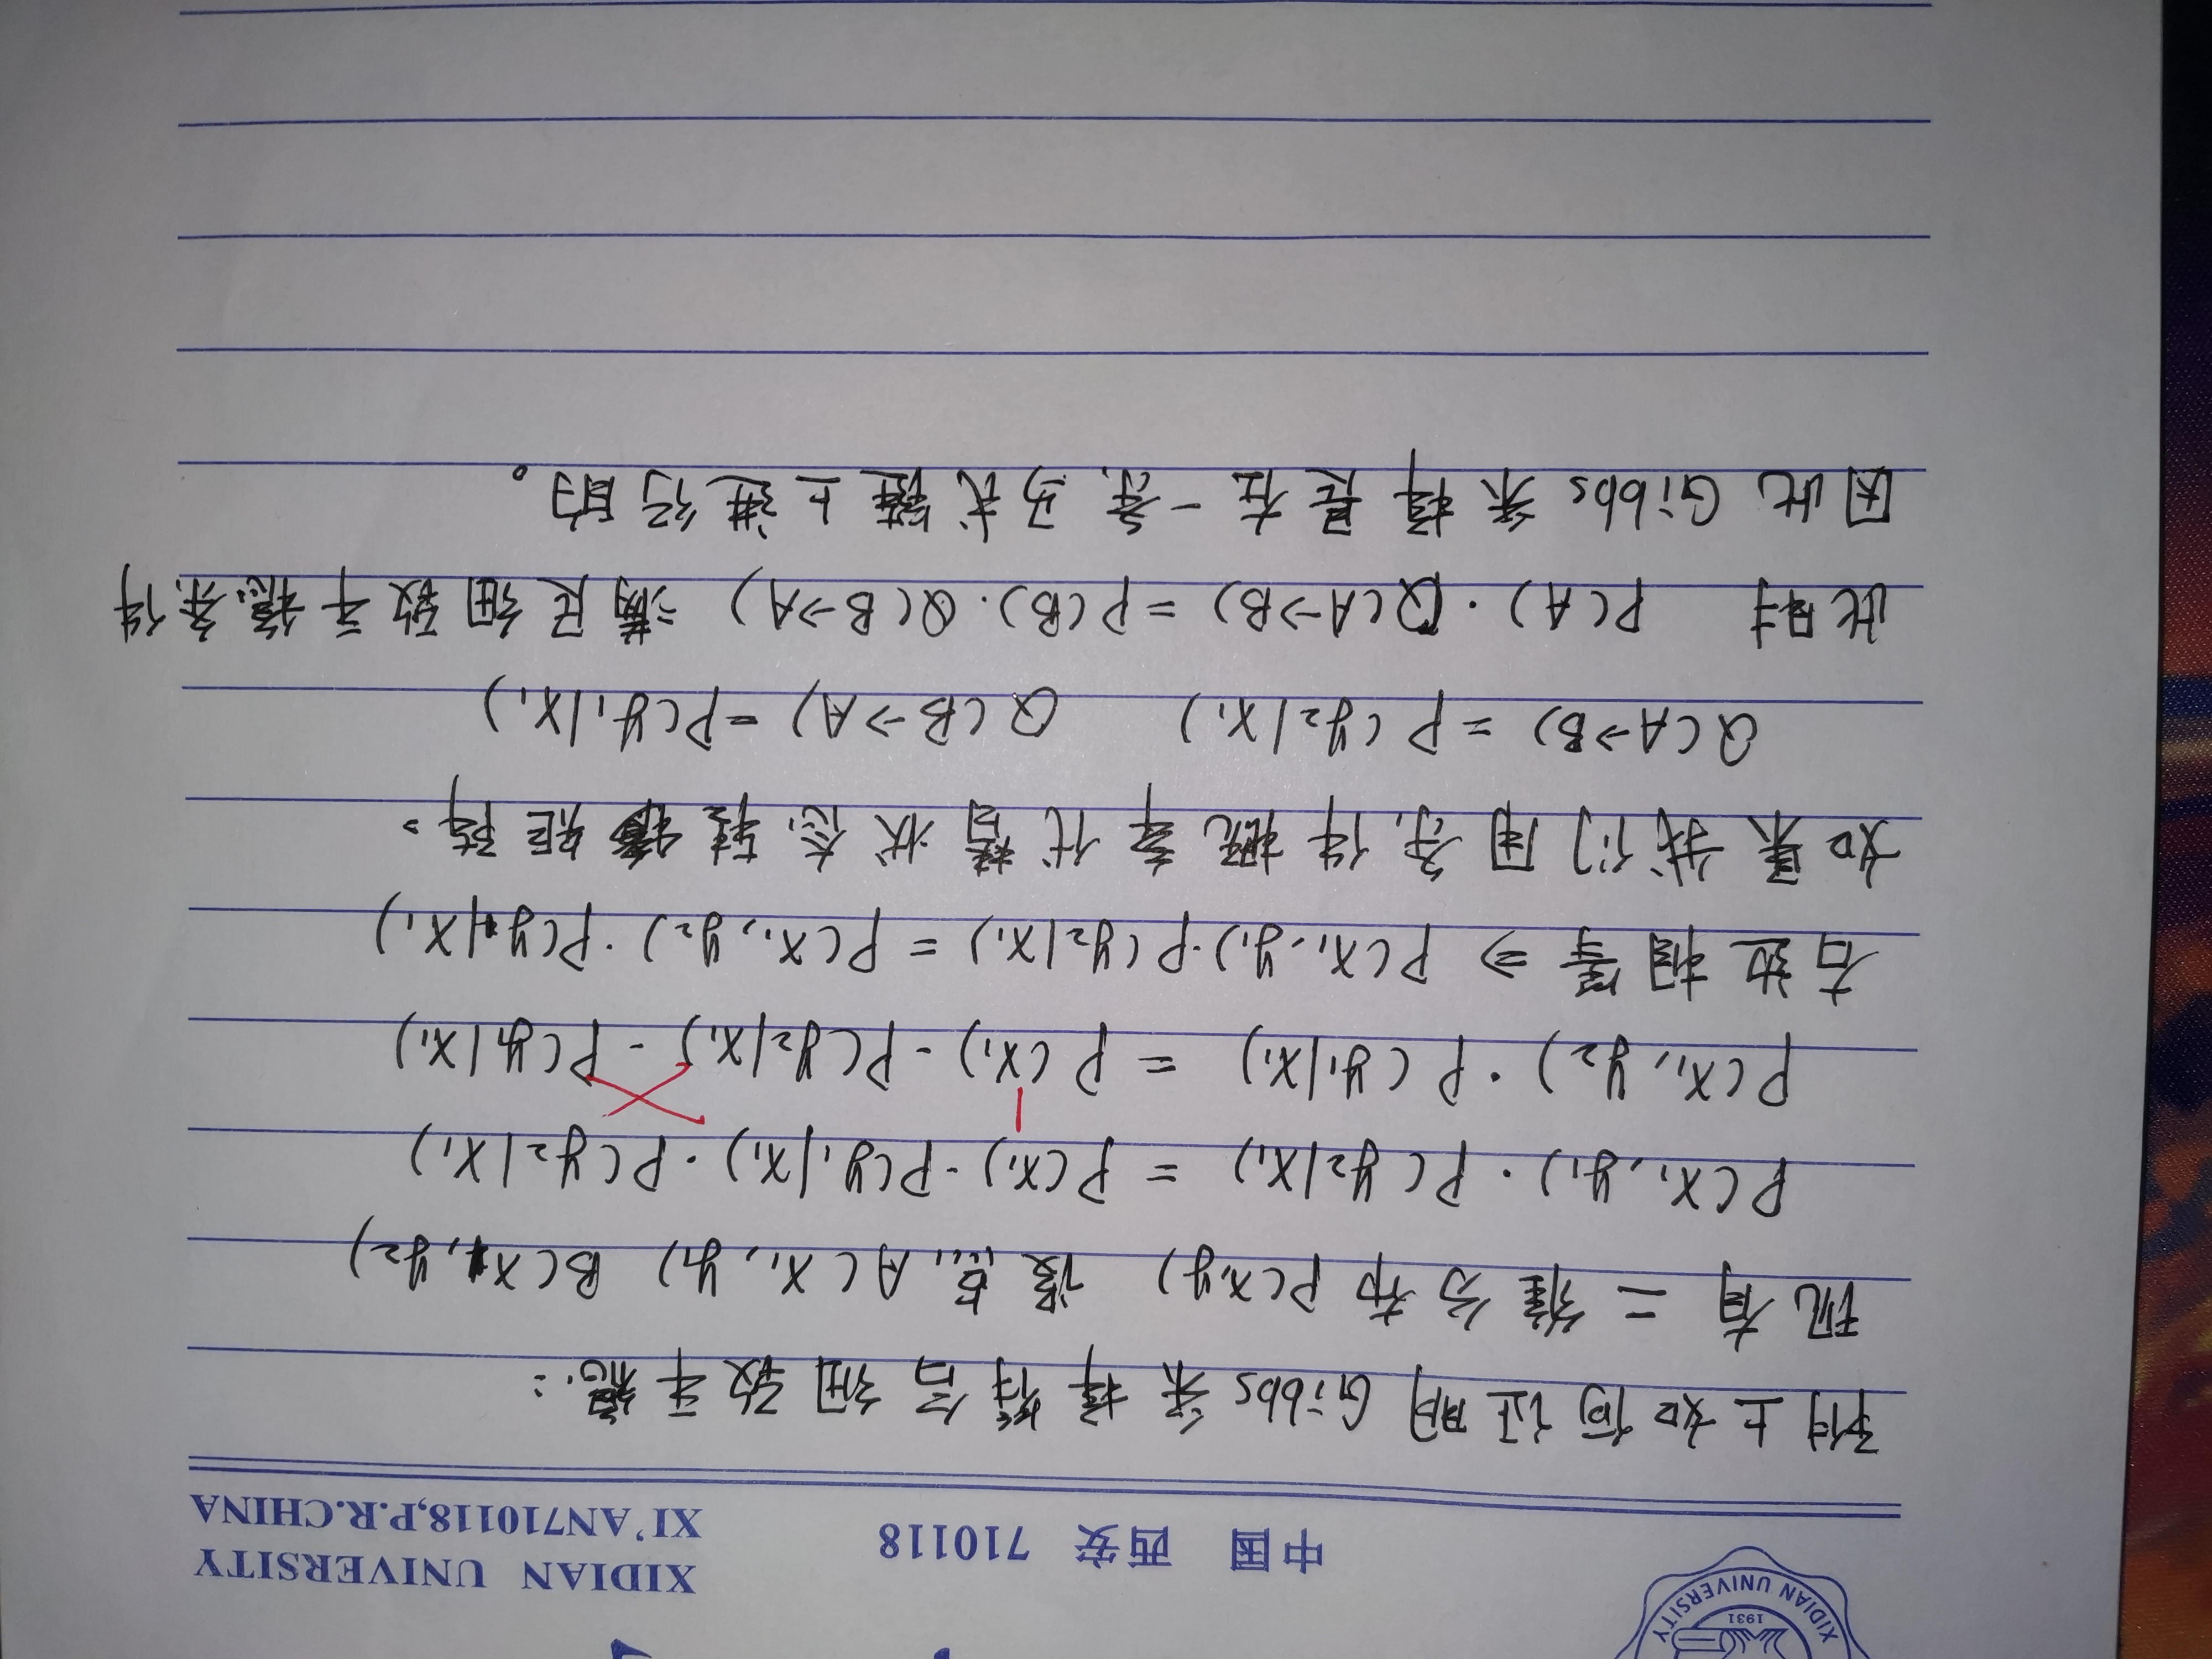 1931
XIDIAN UNIVERSITY
中国 西安 710118
XIDIAN UNIVERSITY
XI'AN710118,P.R.CHINA
附上如何证明Gibbs采样符合细致平稳:
现有二维分布P(x,y) 设点A(x₁,y₁) B(x₁,y₂)
P(x₁,y₁)·P(y₂|x₁) = P(x₁)·P(y₁|x₁)·P(y₂|x₁)
P(x₁,y₂)·P(y₁|x₁) = P(x₁)·P(y₂|x₁)·P(y₁|x₁)
右边相等⇒P(x₁,y₁)·P(y₂|x₁) = P(x₁,y₂)·P(y₁|x₁)
如果我们用条件概率代替状态转移矩阵。
Q(A→B) = P(y₂|x₁) Q(B→A) = P(y₁|x₁)
此时 P(A)·Q(A→B) = P(B)·Q(B→A) 满足细致平稳条件
因此Gibbs采样是在一条马式链上进行的。